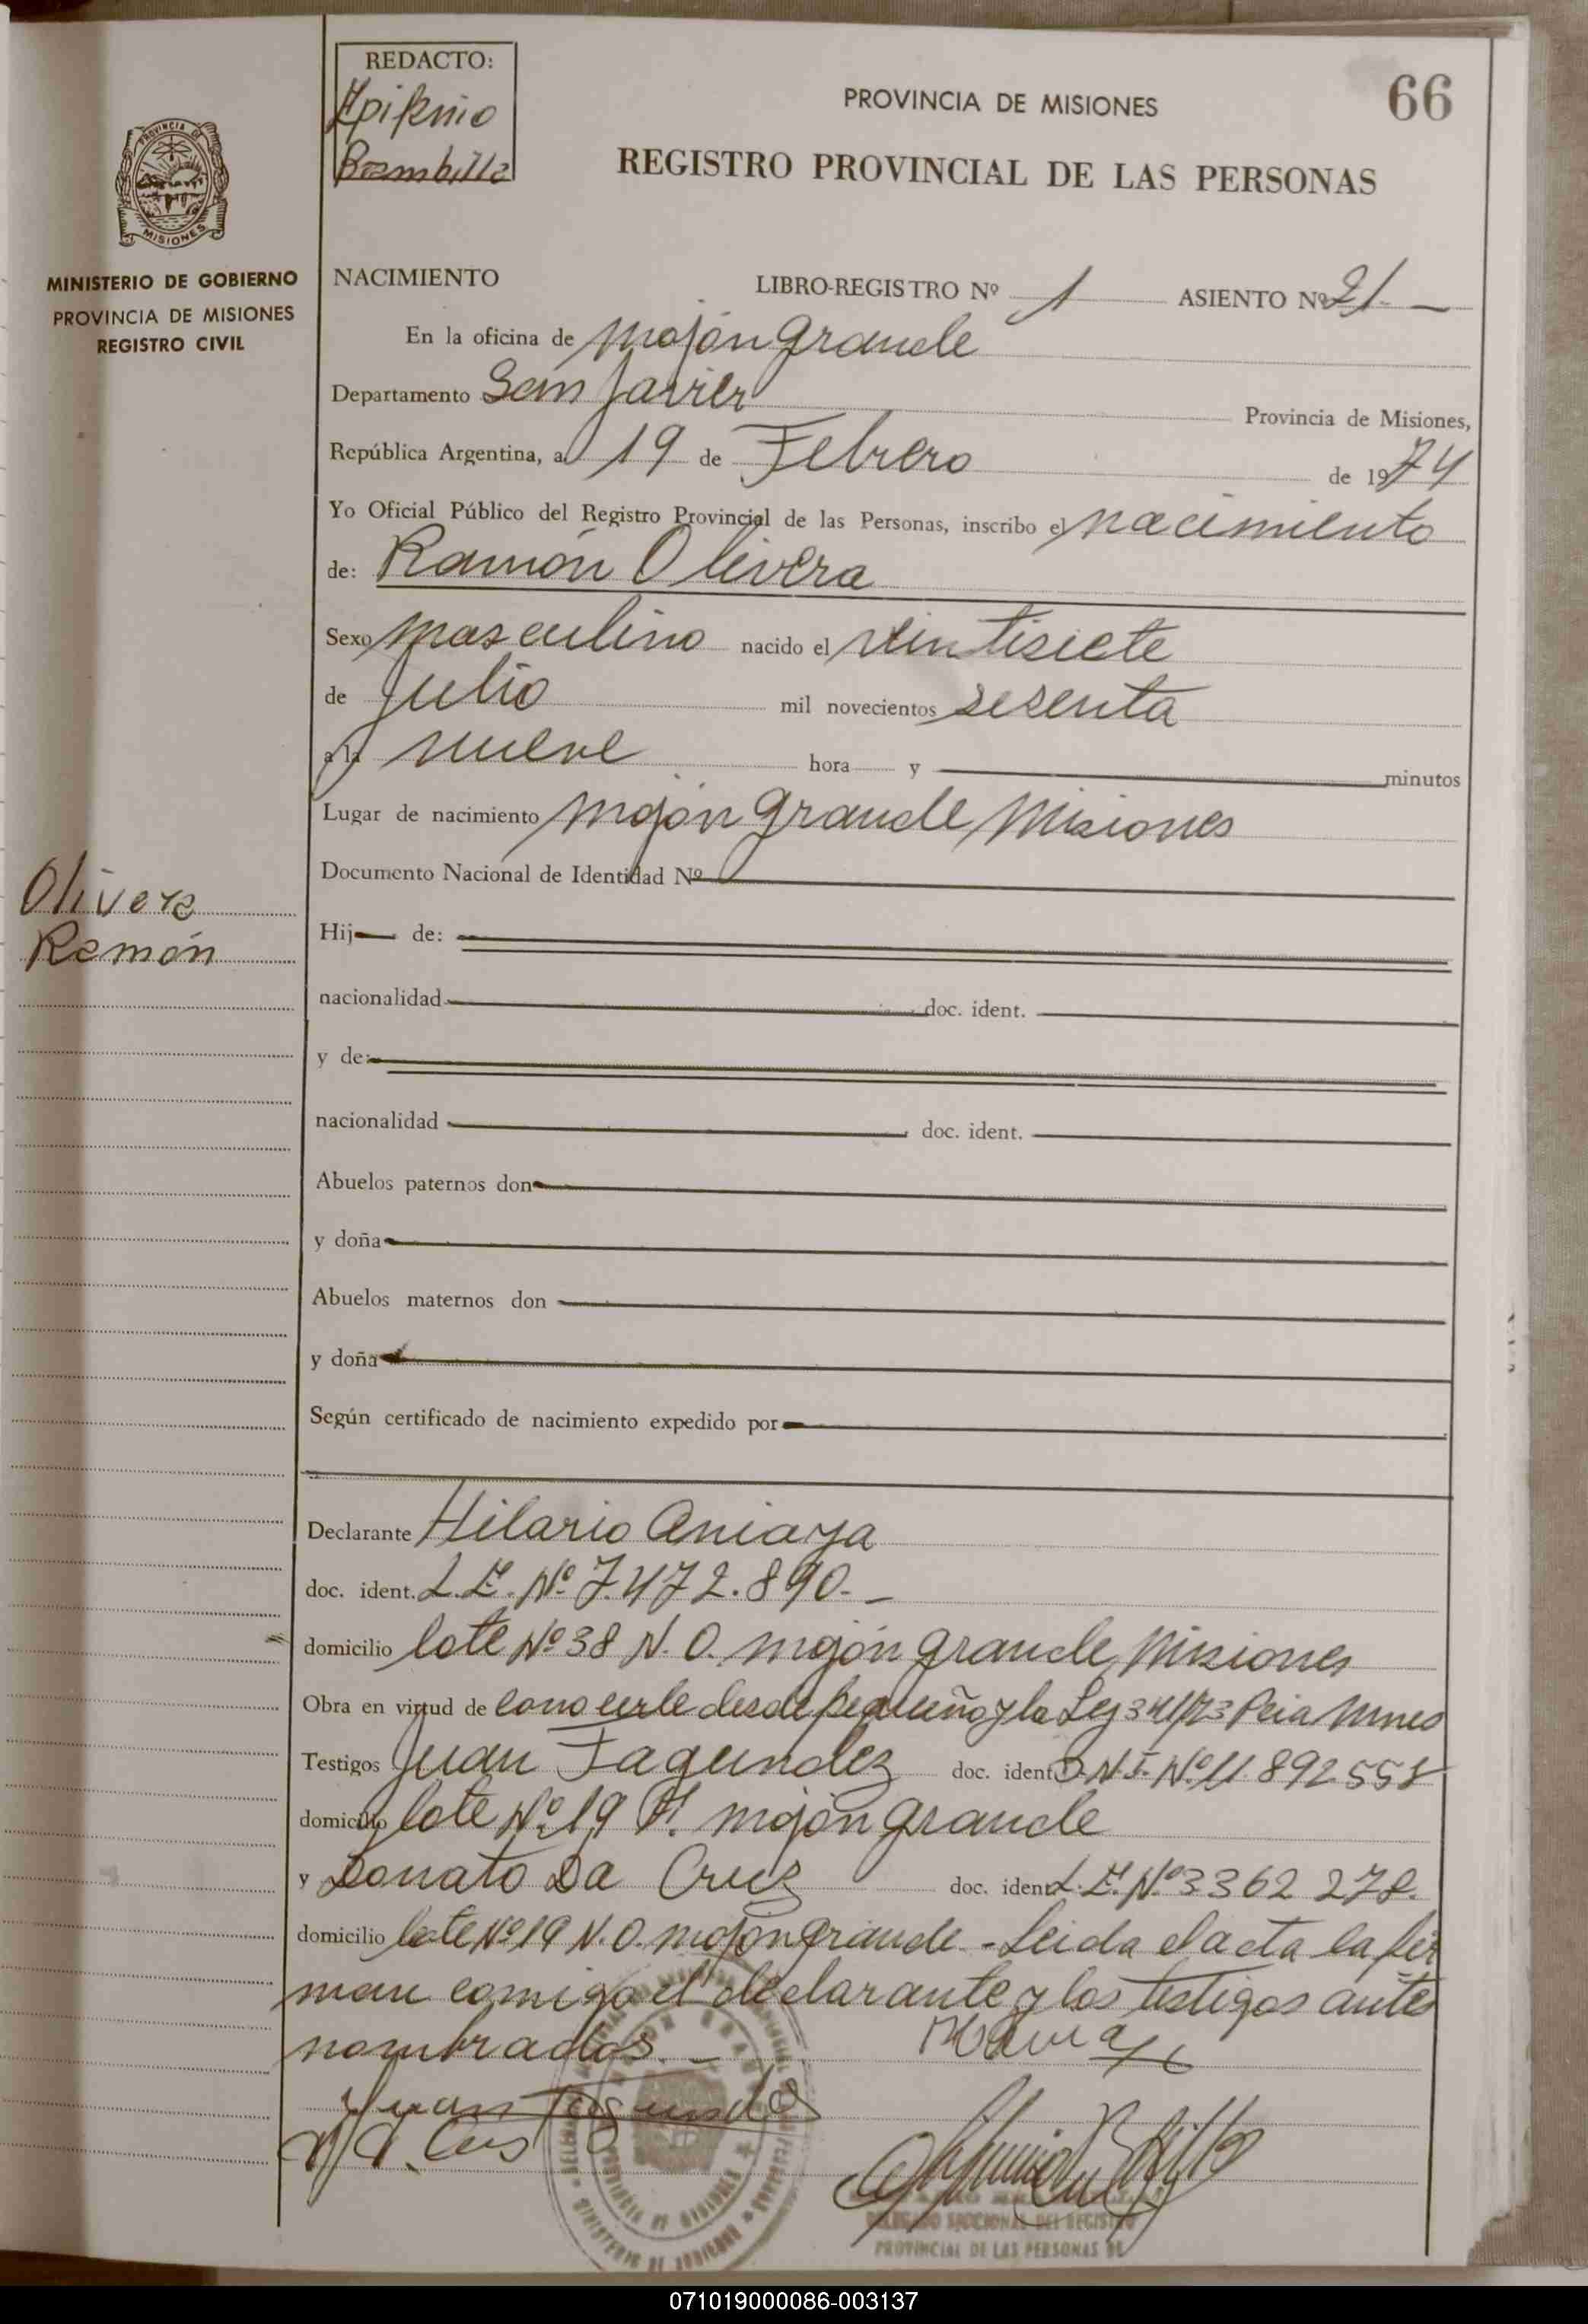 REDACTO:
Epifanio
Brambilla
66
PROVINCIA DE MISIONES
REGISTRO PROVINCIAL DE LAS PERSONAS
PROVINCIA DE
MISIONES
MINISTERIO DE GOBIERNO
PROVINCIA DE MISIONES
REGISTRO CIVIL
NACIMIENTO LIBRO-REGISTRO Nº 1 ASIENTO Nº 21.
En la oficina de Mojón Grande
Departamento San Javier Provincia de Misiones,
República Argentina, a 19 de Febrero de 1974
Yo Oficial Público del Registro Provincial de las Personas, inscribo el nacimiento
de: Ramón Olivera
Sexo masculino nacido el veintisiete
de Julio mil novecientos sesenta
a la nueve hora y minutos
Lugar de nacimiento Mojón Grande, Misiones
Documento Nacional de Identidad Nº
Olivera
Ramón
Hij de:
nacionalidad doc. ident.
y de:
nacionalidad doc. ident.
Abuelos paternos don
y doña
Abuelos maternos don
y doña
Según certificado de nacimiento expedido por
Declarante Hilario
doc. ident. L.E. Nº 7.472.890.-
domicilio lote Nº 38 N.O. Mojón Grande, Misiones
Obra en virtud de conocerle desde pequeño y la Ley 341/73
Testigos Juan Fagundez doc. ident. D.N.I. Nº 11.892.558
domicilio lote Nº 19 Mojón Grande
y Donato Da Cruz doc. ident. L.E. Nº 3362 278.
domicilio lote Nº 19 N.O. Mojón Grande.- Leida el acta la fir
man comigo el declarante y los testigos antes
nombrados.-
Juan Fagundes
DELEGADO SECCIONAL DEL REGISTRO
PROVINCIAL DE LAS PERSONAS DE
071019000086-003137